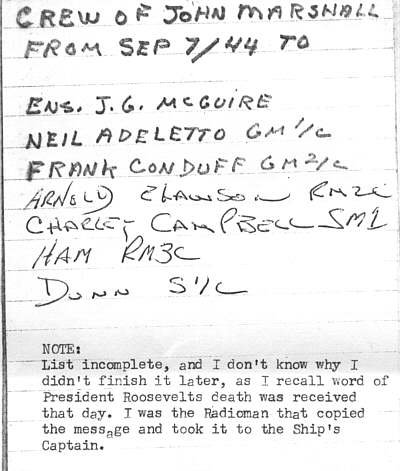 CREW OF JOHN MARSHALL
FROM SEP 7/44 TO
ENS. J.G. McGUIRE
NEIL ADELETTO GM1/c
FRANK CONDUFF GM2/c
ARNOLD RM2C
CHARLEY CAMPBELL SM1
HAM RM3C
DUNN S1/C
NOTE:
List incomplete, and I don't know why I
didn't finish it later, as I recall word of
President Roosevelts death was received
that day. I was the Radioman that copied
the message and took it to the Ship's
Captain.